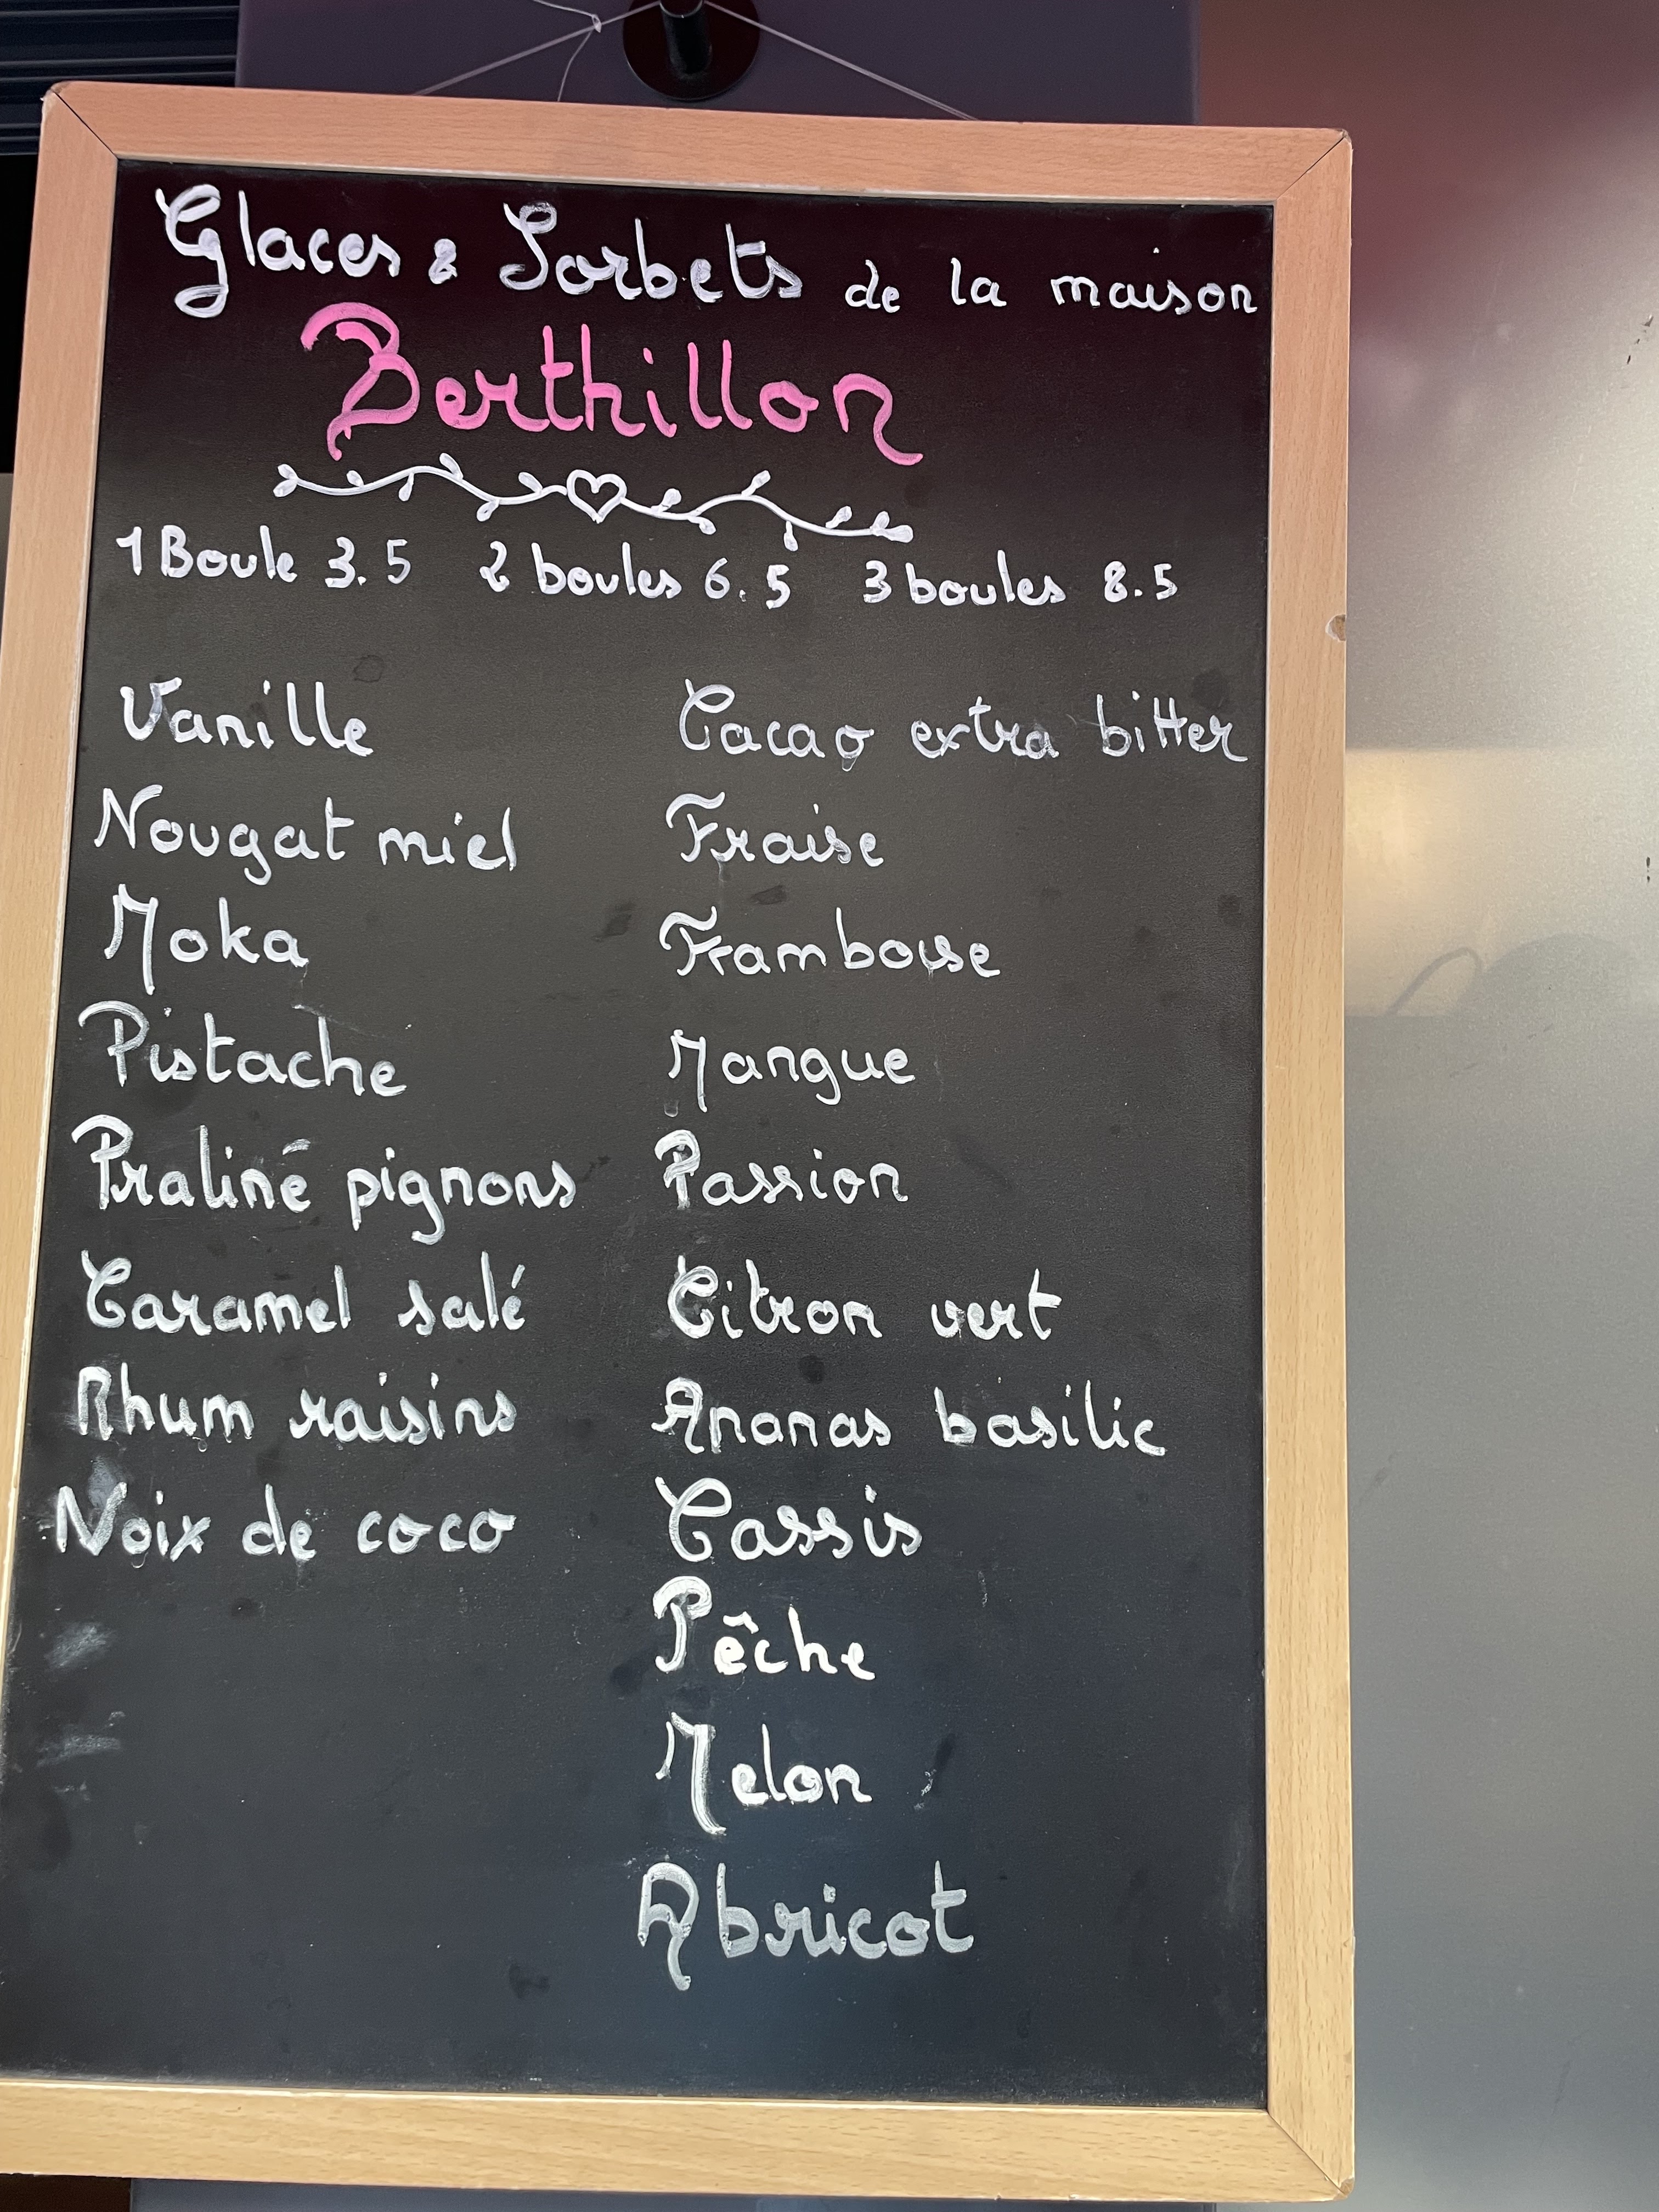 Glaces & Sorbets de la maison
Berthillon
1 Boule 3.5 2 boules 6.5 3 boules 8.5
Vanille
Nougat miel
Moka
Pistache
Praliné pignons
Caramel salé
Rhum raisins
Noix de coco
Cacao extra bitter
Fraise
Framboise
Mangue
Passion
Citron vert
Ananas basilic
Cassis
Pêche
Melon
Abricot